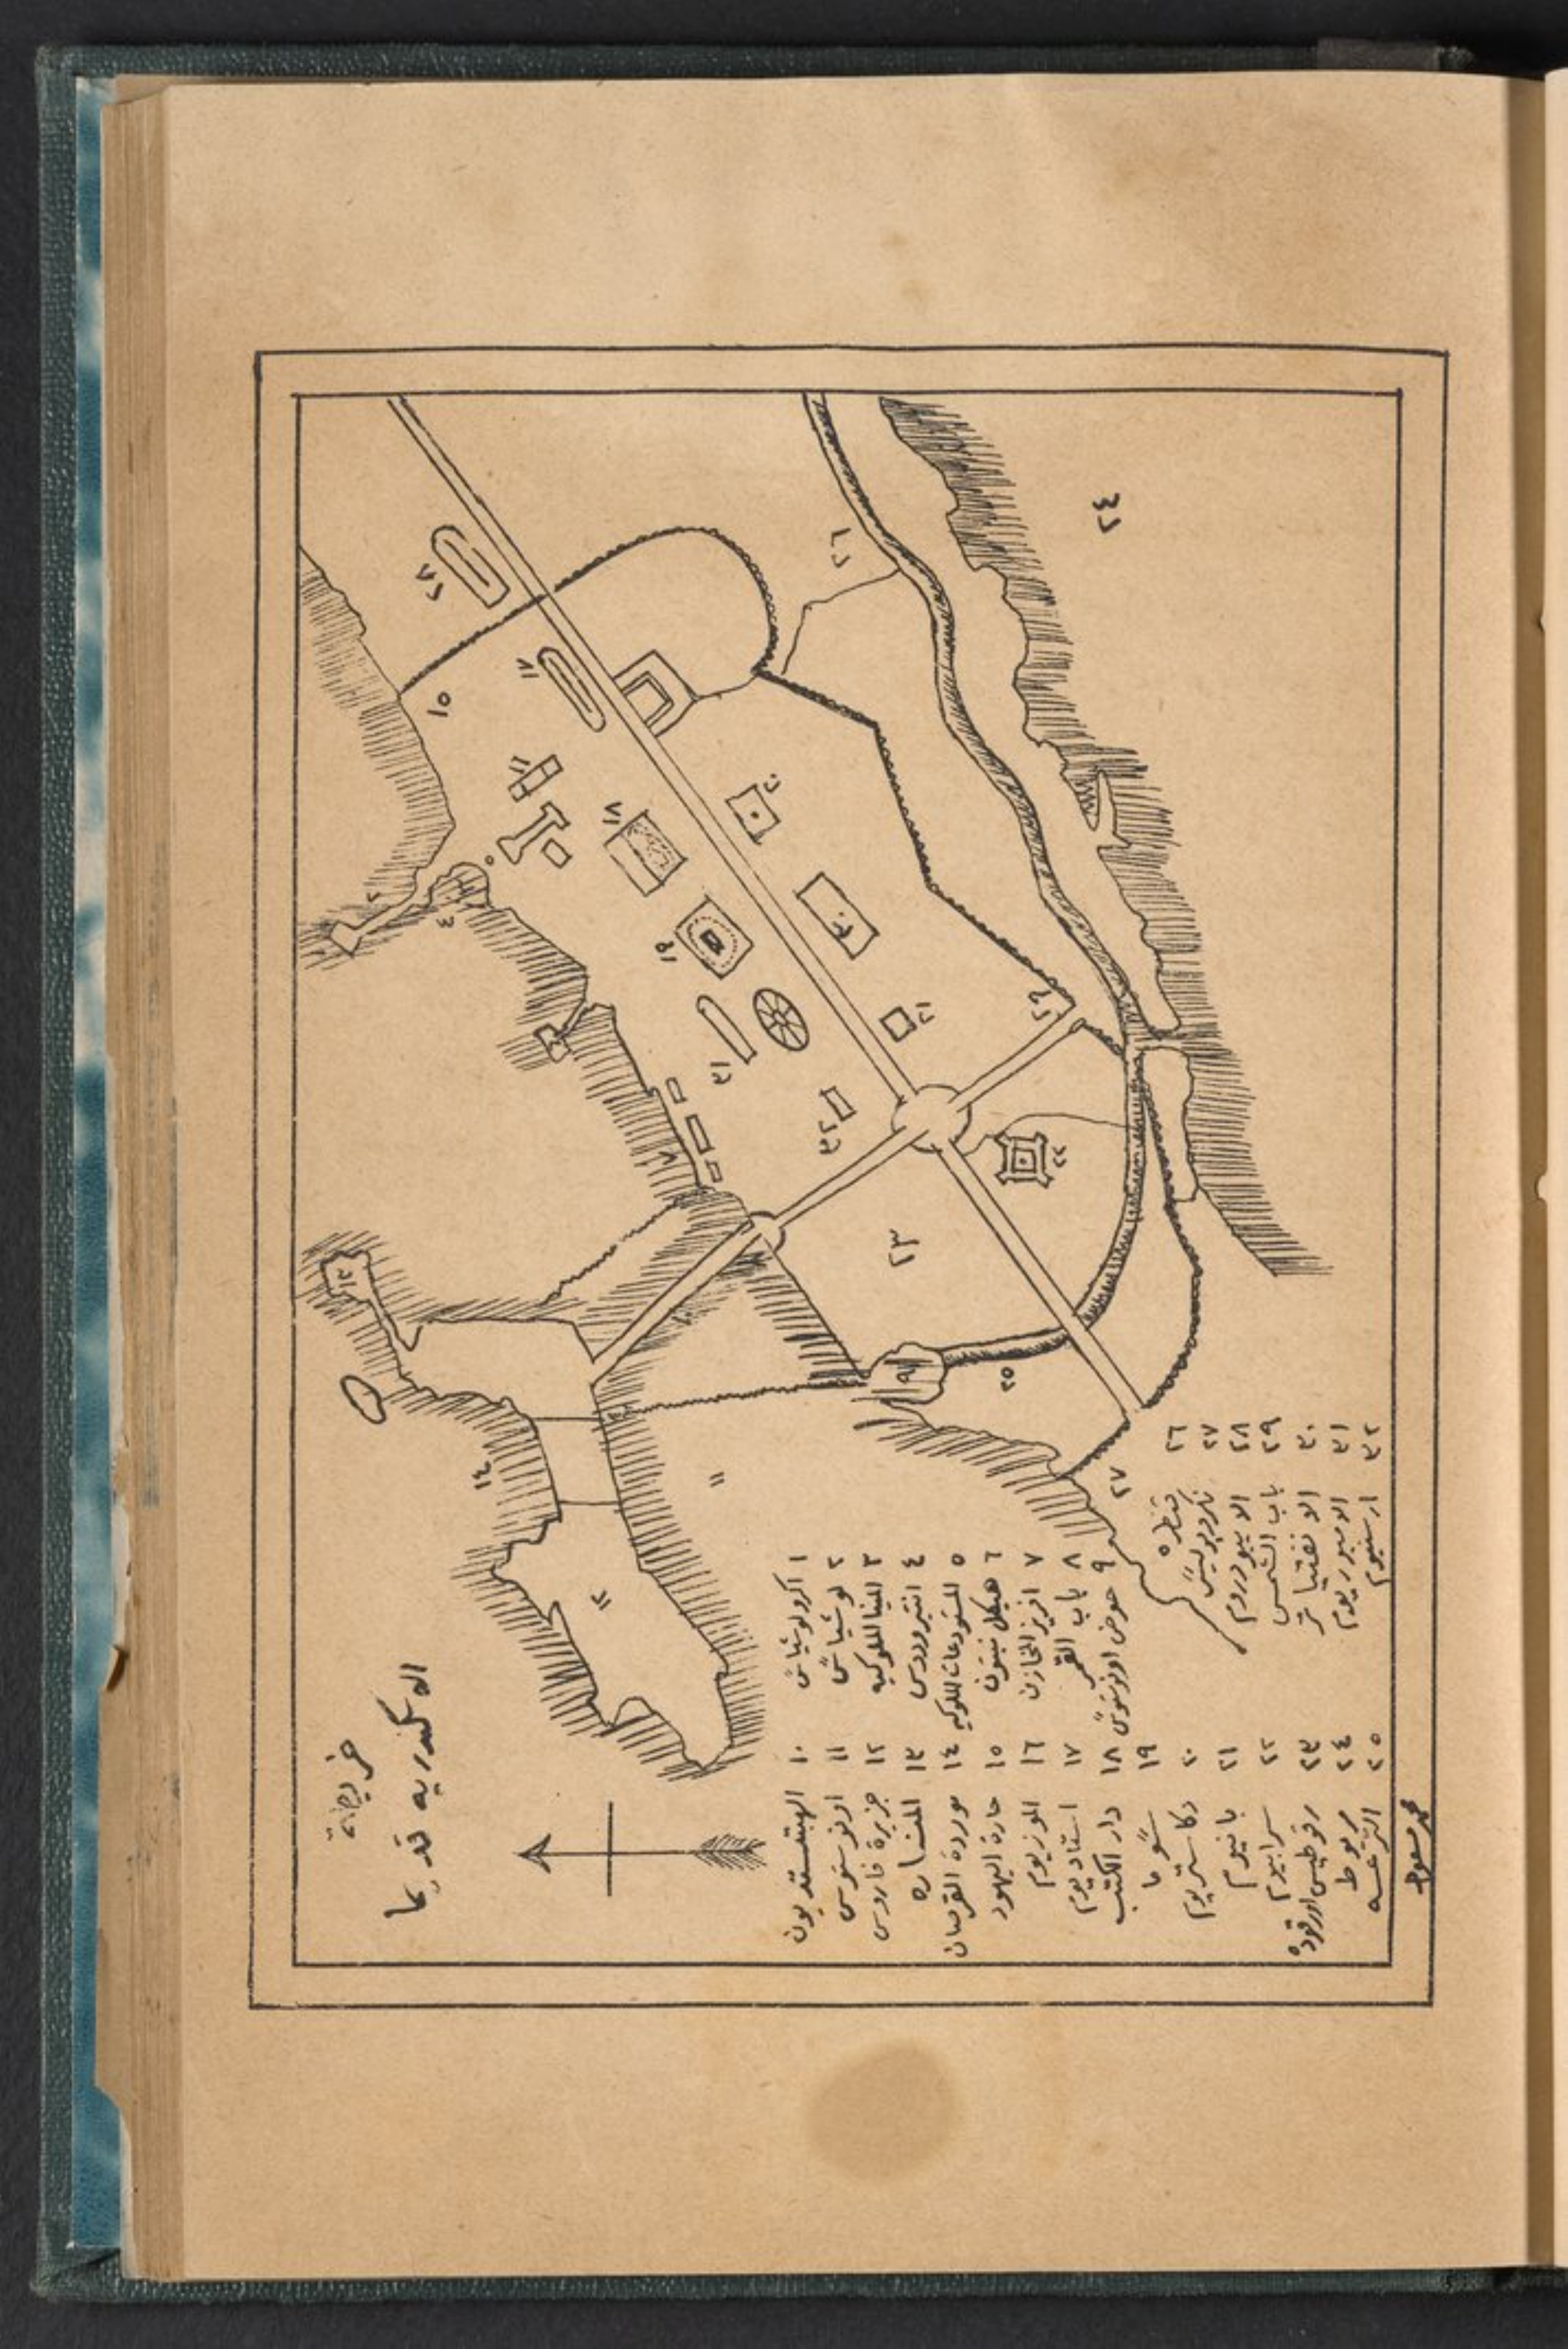 خريطة
الاسكندريه قديما
١ اكرولوشياس
٢ لوشياس
٣ المينا الملوكيه
٤ انتيرودس
٥ المستودعات الملوكيه
٦ هيكل نبتون
٧ افريز المخازن
٨ باب القمر
٩ حوض اونوستوس
١٠ الهبتستديون
١١ اونوستوس
١٢ جزيرة فاروس
١٣ المناره
١٤ موردة القرصان
١٥ حارة اليهود
١٦ الموزيوم
١٧ استاديوم
١٨ دار الكتب
١٩ سوما
٢٠ دكاستريوم
٢١ بانيوم
٢٢ سرابيوم
٢٣ رقوطيس اورقوده
٢٤ مريوط
٢٥ الترعه
٢٦ قنطره
٢٧ نكروبوليس
٢٨ الايبودروم
٢٩ باب الشمس
٣٠ الانفتياتر
٣١ الامبوريوم
٣٢ ارسنيوم
محمد مسعود
٢٨
١٥
١٧
١٦
٢
٣
٥
١٨
١٩
٢٠
٣٠
٢١
٢٩
٣١
٣٢
٢٢
٢٣
٢٤
٢٦
٧
٨
١٠
١١
١٢
١٣
١٤
٩
٢٥
٢٧